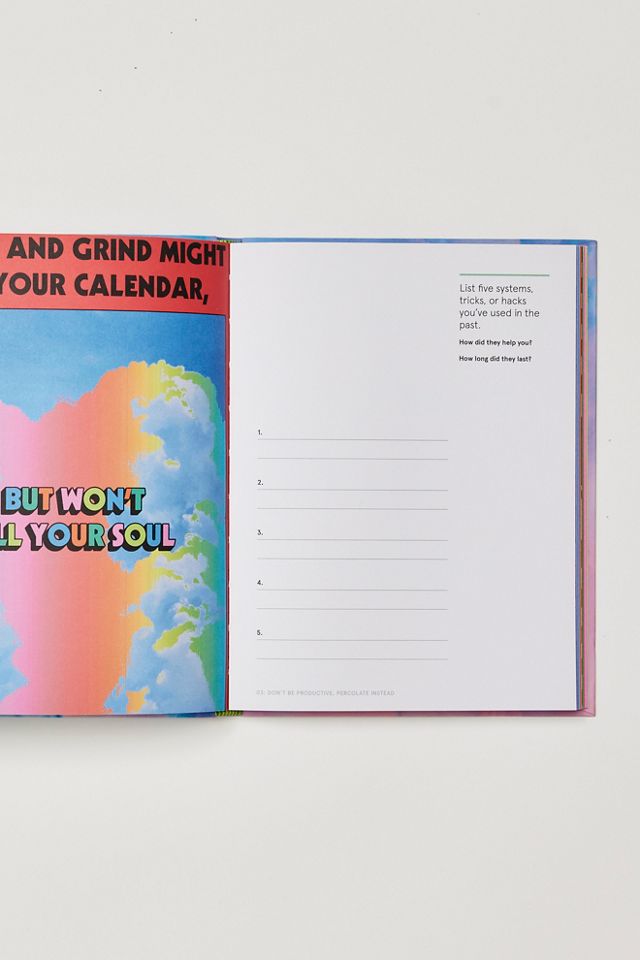 AND GRIND MIGHT
YOUR CALENDAR,
BUT WON'T
YOUR SOUL
List five systems,
tricks, or hacks
you've used in the
past.
How did they help you?
How long did they last?
1.
2.
3.
4.
5.
03: DON'T BE PRODUCTIVE, PERCOLATE INSTEAD